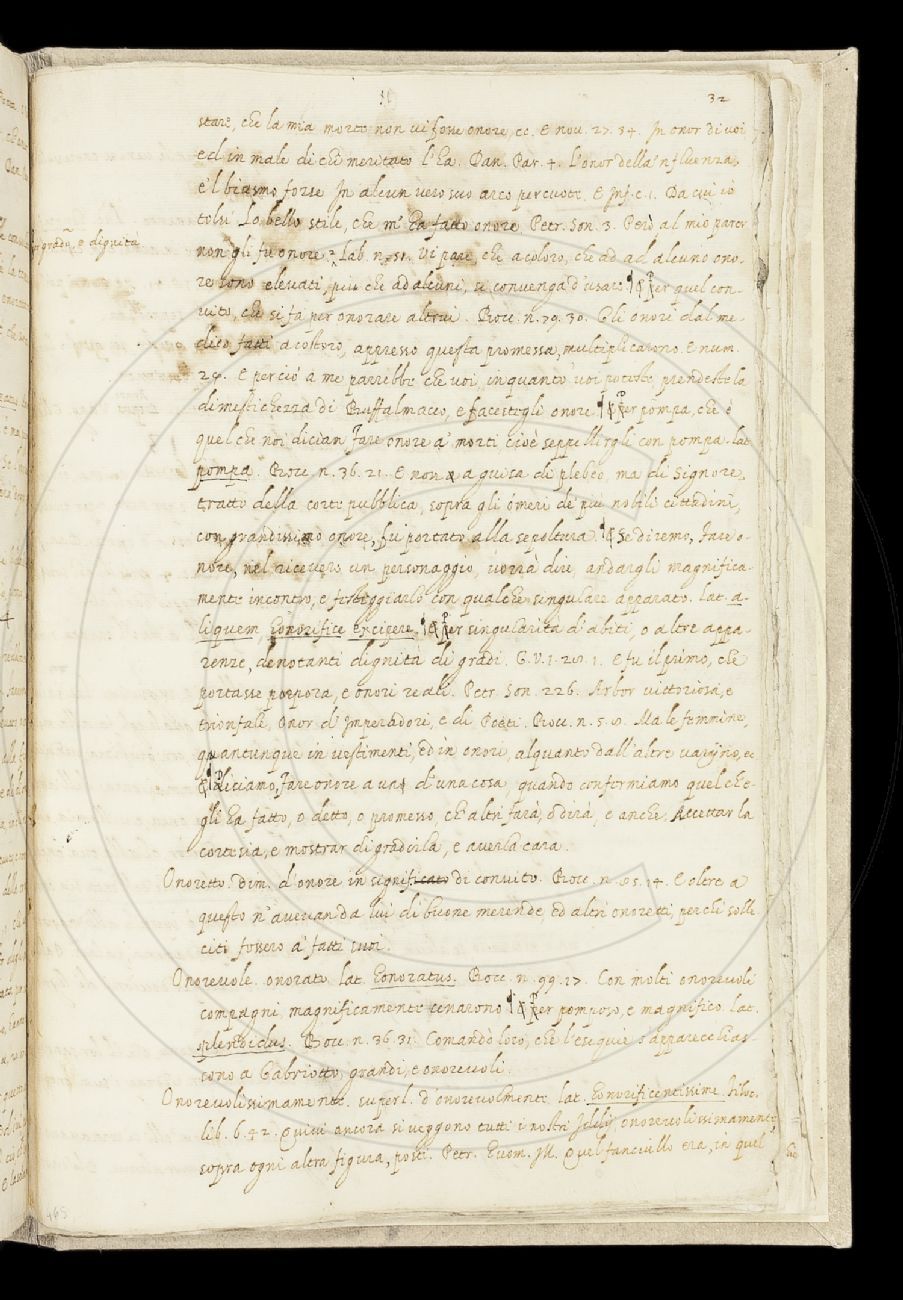 32
stare, che la mia morte non vi fosse onore, ec. E nov. 27. 34. In onor di voi
ed in male di chi meritato l'ha. Dan. Par. 4. L'onor della 'nfluenza,
e 'l biasmo forse In alcun vero suo arco percuote. E Inf. c. 1. Da cui io
tolsi Lo bello stile, che m' ha fatto onore. Petr. Son. 3. Però al mio parer
per grado, e dignità
non gli fu onore. Lab. n. 51. Vi pare, che a coloro, che ad ad alcuno ono-
re sono elevati, più che ad alcuni, si convenga d'usare ¶ Per quel con-
vito, che si fa per onorare altrui. Bocc. n. 79. 30. Gli onori dal me-
dico fatti a costoro, appresso questa promessa, multiplicarono. E num.
24. E perciò a me parrebbe che voi, in quanto voi poteste, prendeste la
dimestichezza di Buffalmacco, e facestegli onore ¶ Per pompa, che è
quel che noi dician fare onore a' morti, cioè seppellirgli con pompa. lat
pompa. Bocc. n. 36. 21. E non a guisa di plebeo, ma di Signore,
tratto della corte pubblica, sopra gli òmeri de' più nobili cittadini,
con grandissimo onore, fu portato alla sepoltura. ¶ Se diremo, fare o-
nore, nel ricevere un personaggio, vorrà dire, andargli magnifica-
mente incontro, e festeggiarlo con qualche singulare apparato. lat. a-
liquem, honorifice excipere. ¶ Per singularità d'abiti, o altre appa-
renze, denotanti dignità di gradi. G. V. 1. 28. 1. E fu il primo, che
portasse porpora, e onori reali. Petr. Son. 226. Arbor vittoriosa, e
trionfale, Onor d' Imperadori, e di Poeti. Bocc. n. 5. 8. Ma le femmine,
quantunque in vestimenti, ed in onori, alquanto dall'altre varijno, ec
¶ Diciamo, fare onore a una d'una cosa, quando conformiamo quel che e-
gli ha fatto, o detto, o promesso, ch' altri farà, o dirà, e anche, Accettar la
cortesia, e mostrar di gradirla, e averla cara.
Onoretto. dim. d'onore in significato di convito. Bocc. n. 85. 14. E oltre a
questo n' avevan da lui di buone merende, ed altri onoretti, perchè solle-
citi fossero a' fatti suoi.
Onorevole. onorato. lat. honoratus. Bocc. n. 99. 27. Con molti onorevoli
compagni, magnificamente cenarono ¶ Per pomposo, e magnifico. lat.
splendidus. Bocc. n. 36. 31. Comandò loro, che l'esequie s'apparecchias-
sono a Gabriotto, grandi, e onorevoli.
Onorevolissimamente. superl. d'onorevolmente. lat. honorificentissime. Filoc.
lib. 6. 42. Quivi ancora si veggono tutti i nostri Iddij onorevolissimamente
sopra ogni altra figura, posti. Petr. huom. ill. Quel fanciullo era, in quel
465